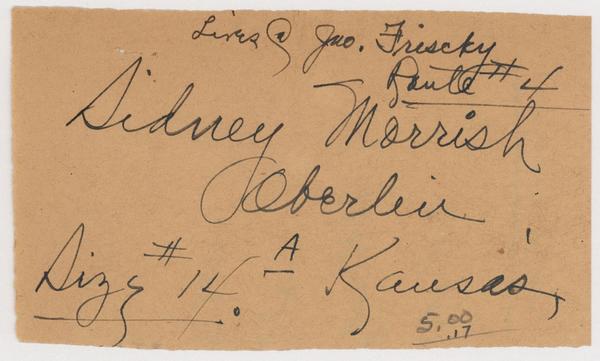 Lives @ Jno. Friscky
Route #4
Sidney Morrish
Oberlin,
Size #14. A Kansas,
5.00
.17